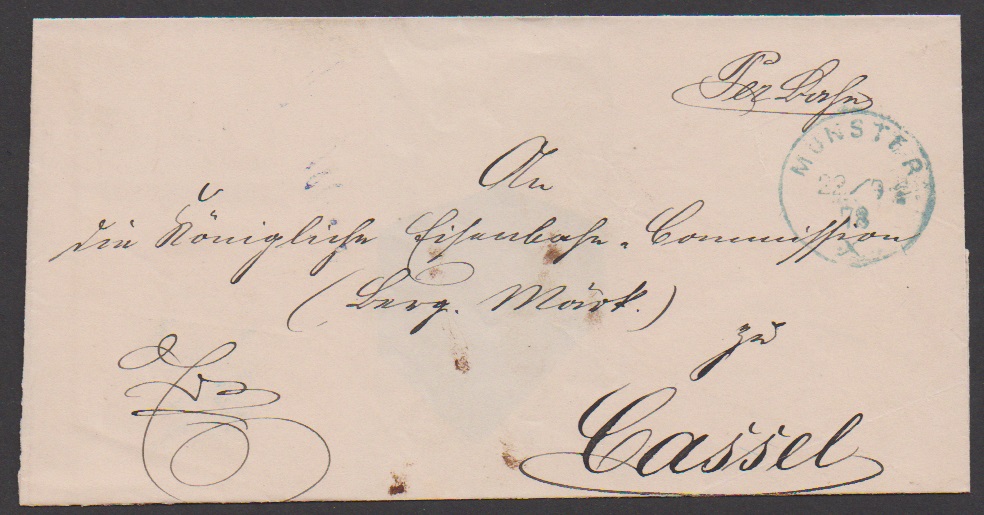 Per Bahn
MÜNSTER
22/9
78
An
die Königliche Eisenbahn-Commission
(Berg. Märk.)
zu
Cassel